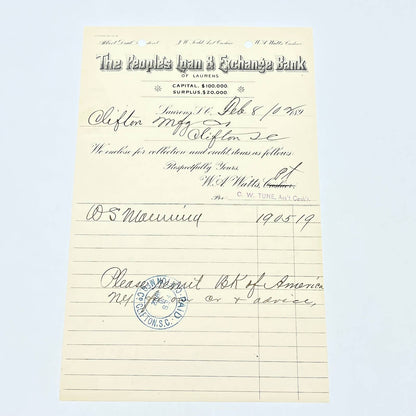 J. W. Todd, Ass't Cashier W. A. Watts, Cashier
The Peoples Loan & Exchange Bank
OF LAURENS
CAPITAL, $100,000.
SURPLUS, $20,000.
Laurens, S. C., Feb 8/02 189
Clifton Mfg Co
Clifton S C
We enclose for collection and credit items as follows:
Respectfully Yours,
W. A. Watts, Cashier.
Per C. W. TUNE, Ass't Cash'r.
W S Manning 1905 19
Please remit BK of America
NY for our cr & advice,
PAID
CLIFTON, S.C.